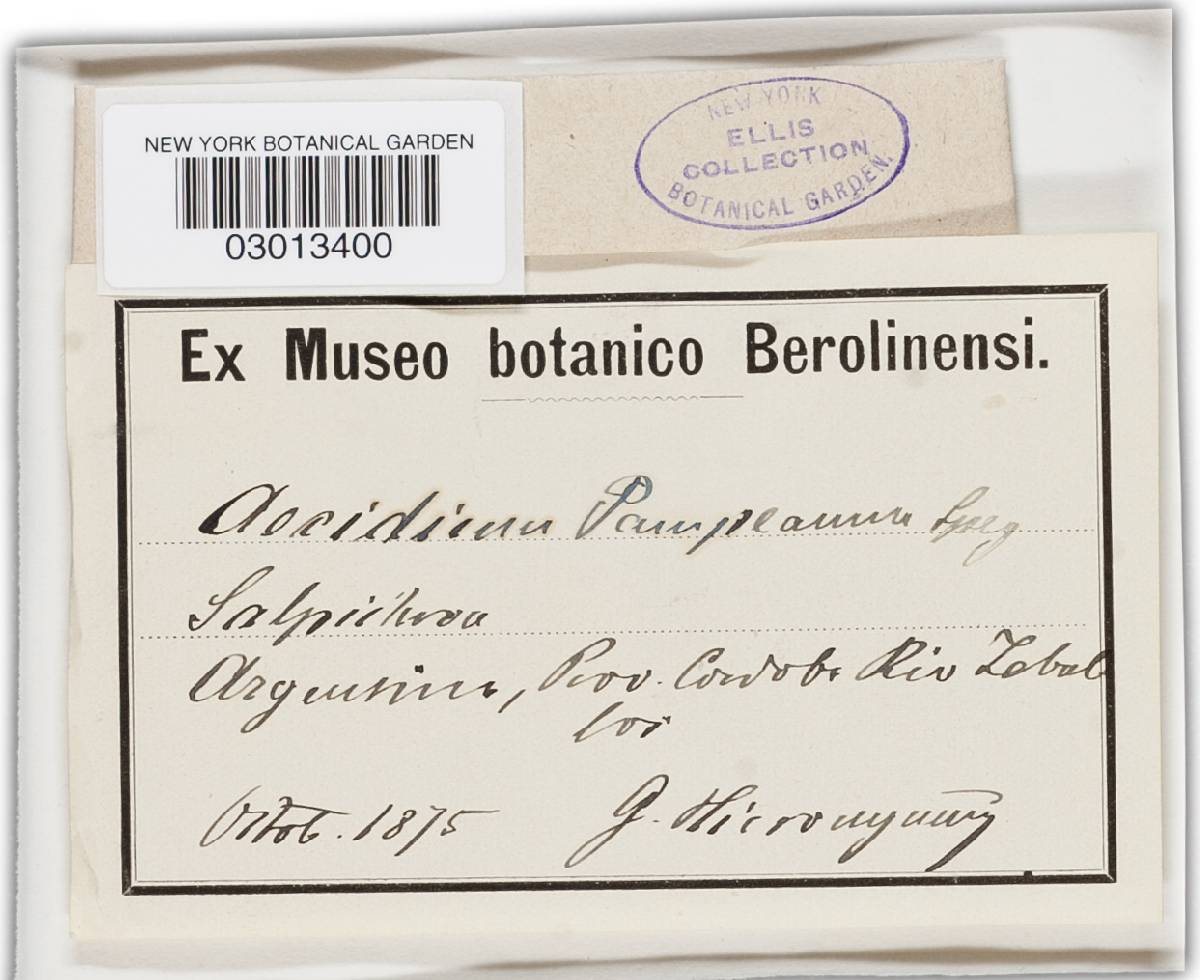 NEW YORK BOTANICAL GARDEN
03013400
NEW YORK
ELLIS
COLLECTION
BOTANICAL GARDEN.
Ex Museo botanico Berolinensi.
Aecidium Pampeanum Speg
Salpichroa
Argentina, Prov. Cordoba Rio Zebal
los
Octob. 1875 G. Hieronymus